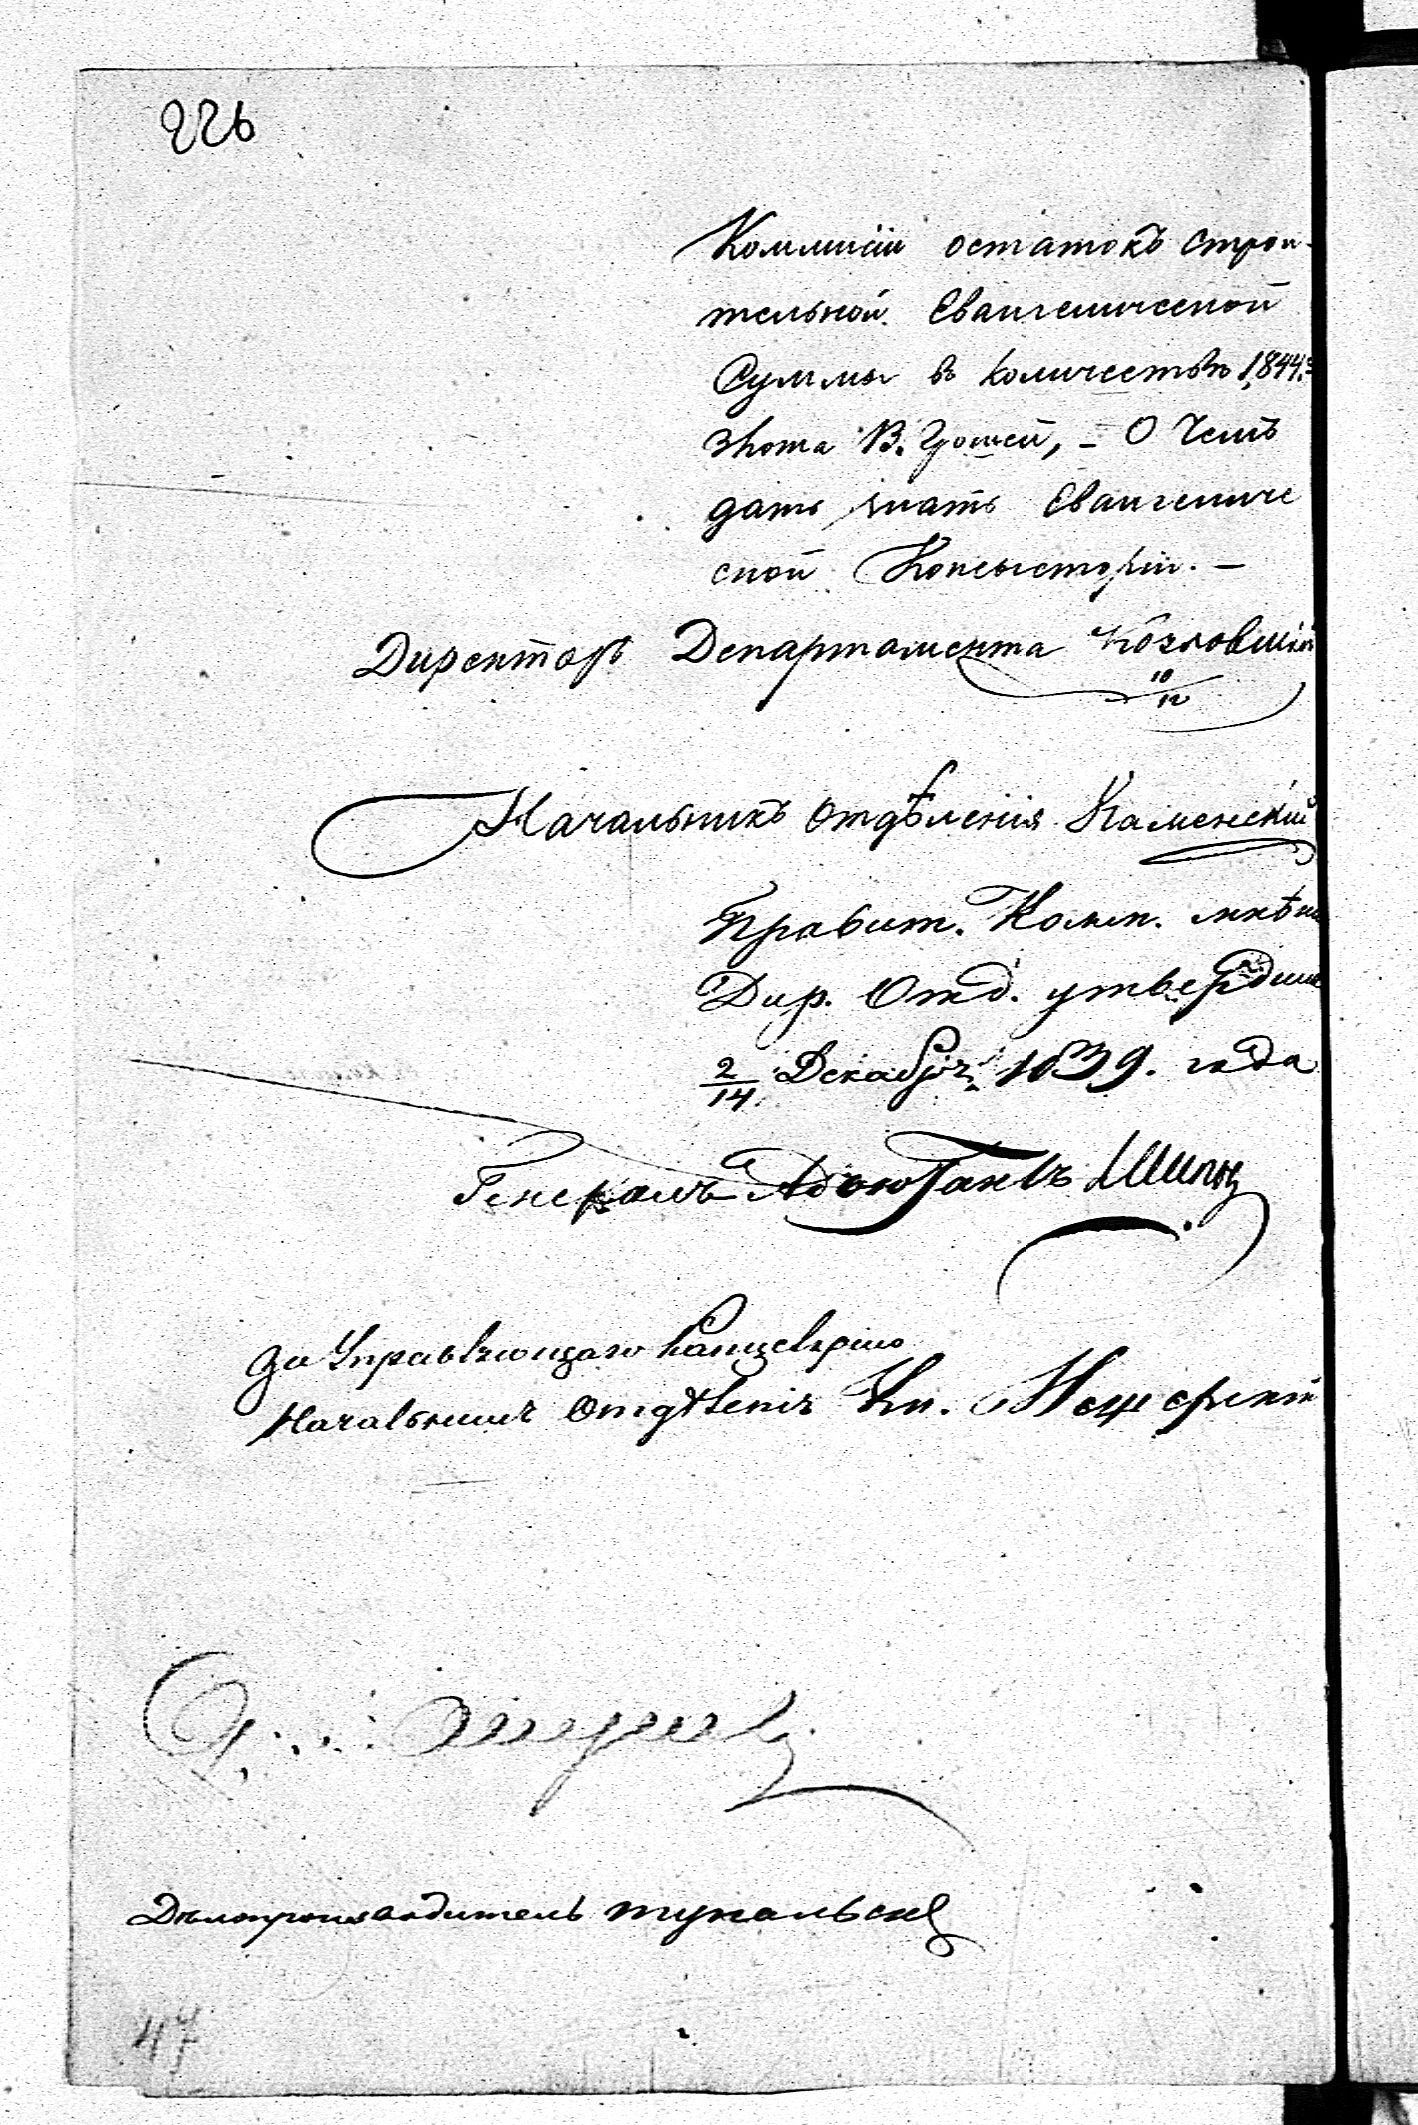 226
Коммисіи остатокъ строи-
тельной Евангелической
Суммы в количествѣ 1,844.
злота 13. Грошей, – О Чемъ
дать знать Евангеличе
ской Консысторіи. –
Директоръ Департамента Козловскій
10/12
Начальникъ Отдѣленія Каменскій
Правит. Комм. мнѣніе
Дир. Отд. утвердила
2/14 Декабря 1839. года
Генералъ Адъютантъ Шипов
За Управляющаго Канцеляріею
Начальникъ Отдѣленія Кн. Мещерскій
Дѣлопроизводитель
47